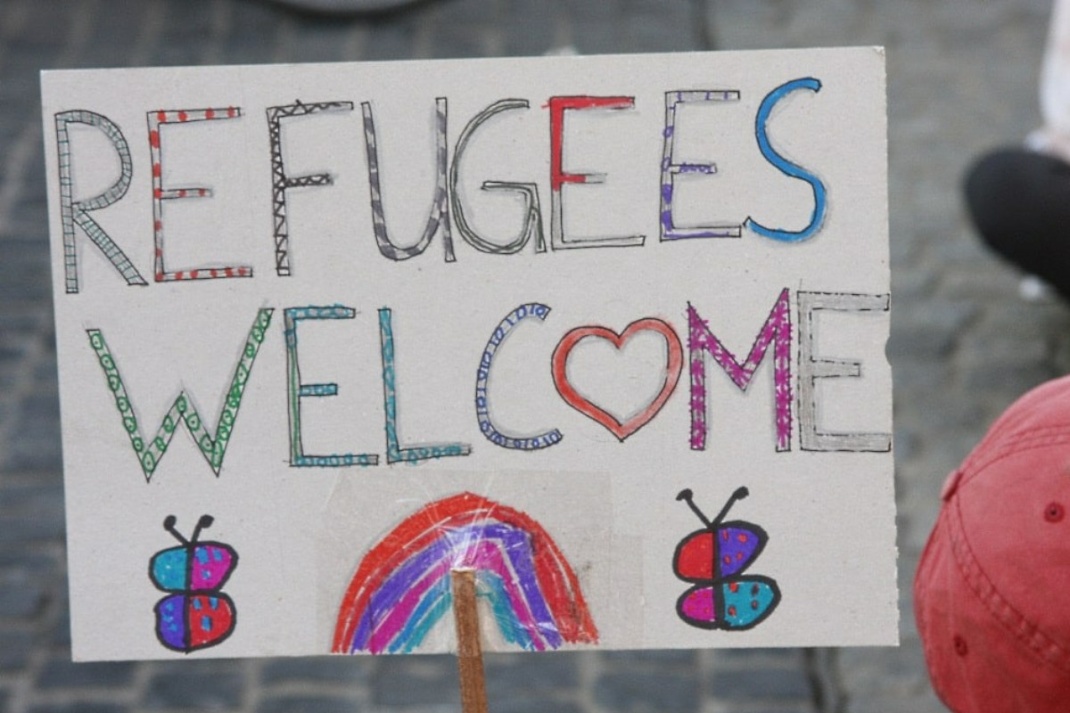 REFUGEES
WELC♥ME